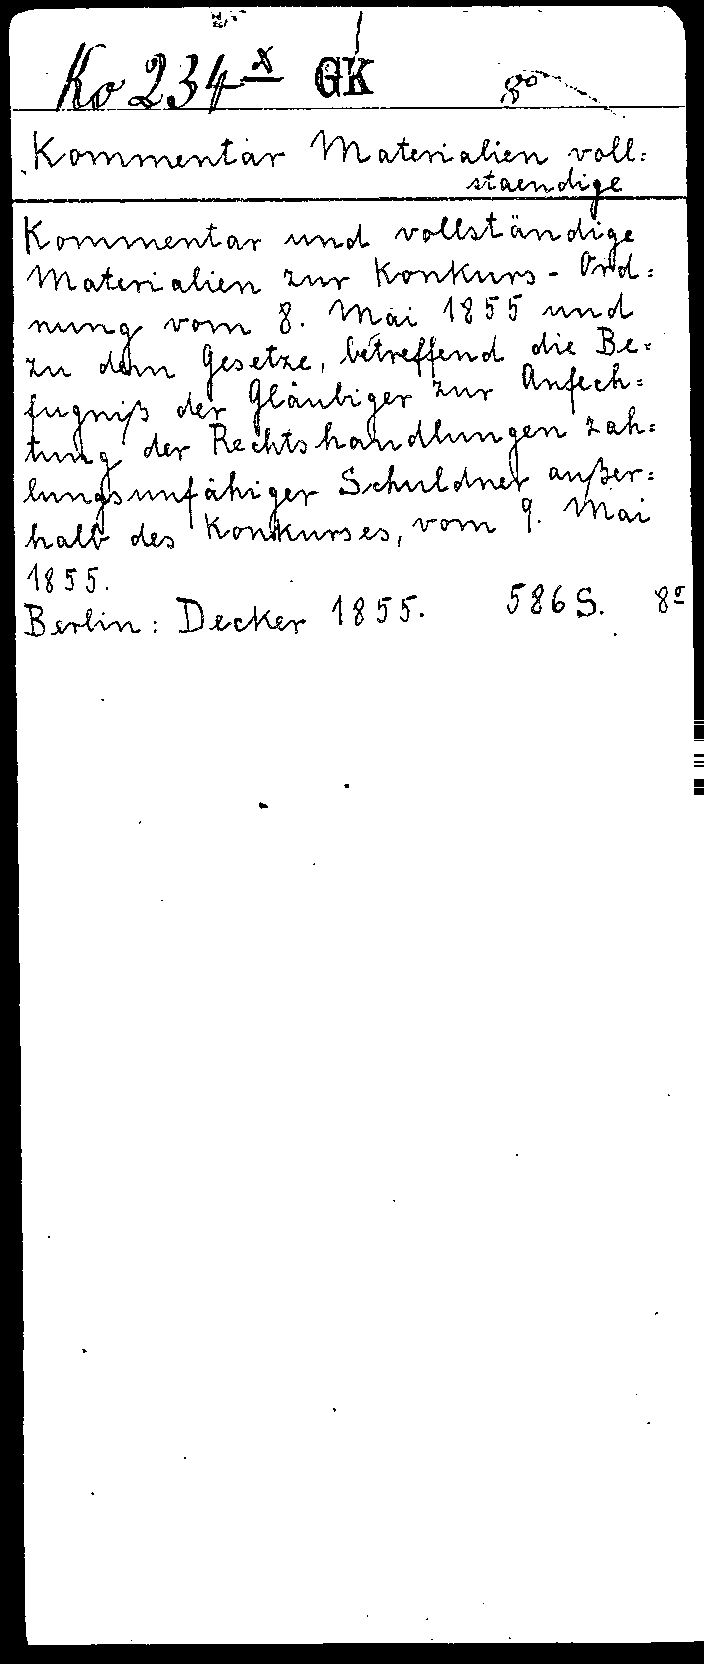 Ko 234 x GK 8°
Kommentar Materialien voll=
staendige
Kommentar und vollständige
Materialien zur Konkurs-Ord=
nung vom 8. Mai 1855 und
zu dem Gesetze, betreffend die Be=
fugniß der Gläubiger zur Anfech=
tung der Rechtshandlungen zah=
lungsunfähiger Schuldner außer=
halb des Konkurses, vom 9. Mai
1855.
Berlin: Decker 1855. 586 S. 8°